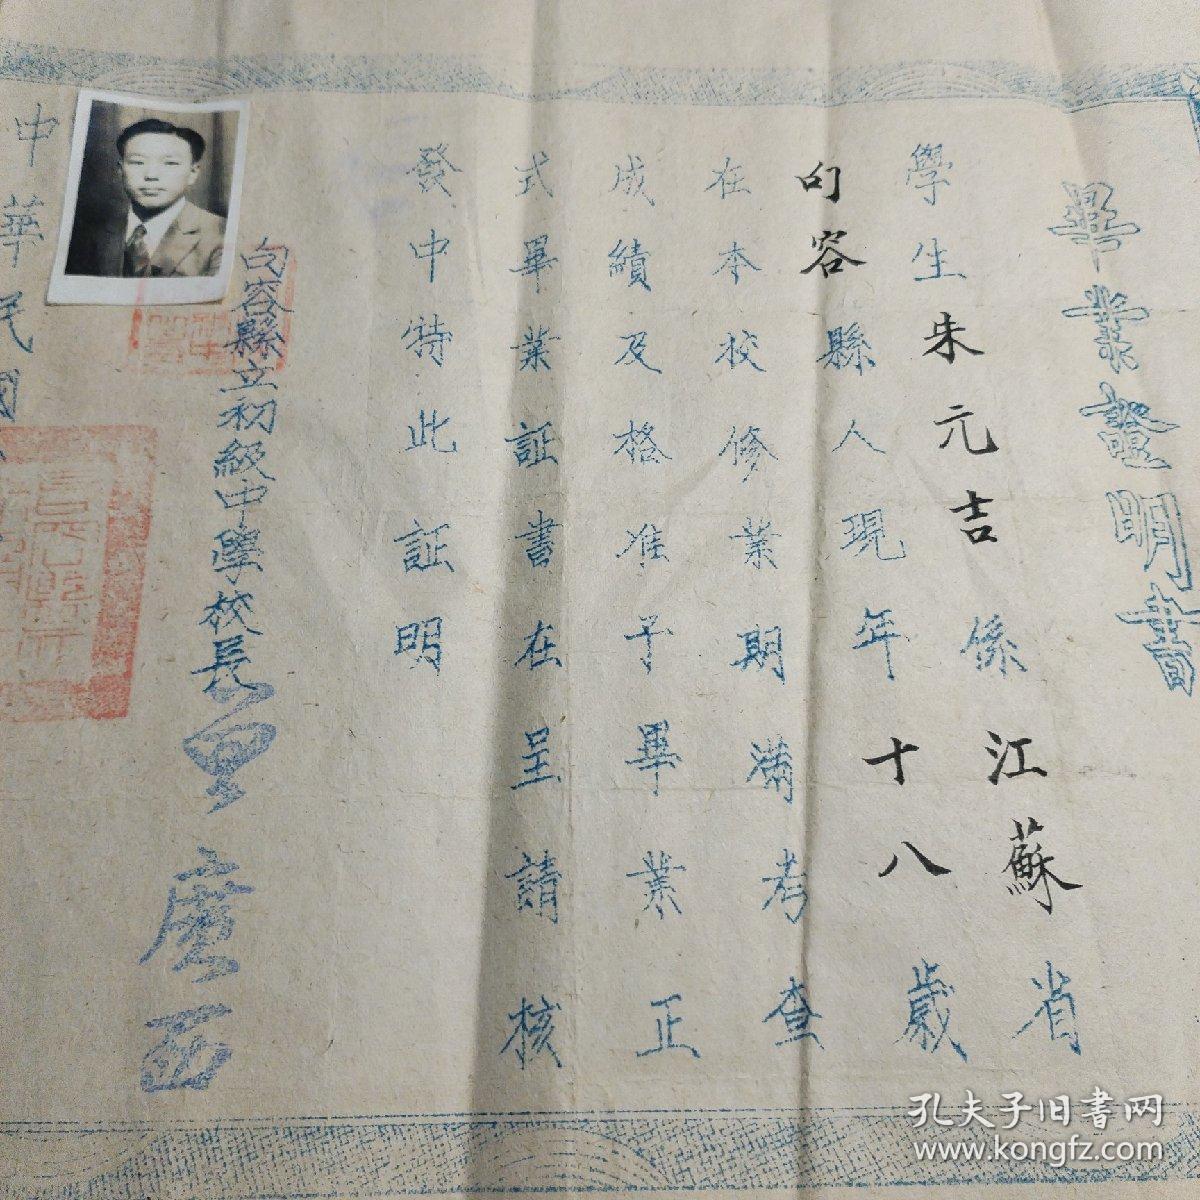 畢業證明書
學生朱元吉係江蘇省
句容縣人現年十八歲
在本校修業期滿考查
成績及格准予畢業正
式畢業証書在呈請核
發中特此証明
句容縣立初級中學校長
中華民國
孔夫子旧書网
www.kongfz.com